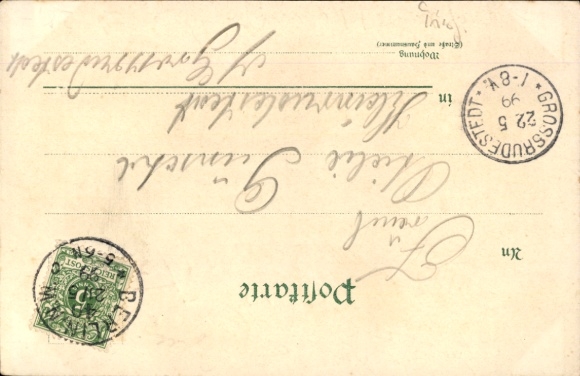 Postkarte
An
Frau
in Kleinrudestedt
Wohnung
(Straße und Hausnummer)
b/ Grossrudestedt
BERLIN N.W.
40
21/5
99
5-6N
c
REICHSPOST
5
GROSSRUDESTEDT
22 5
99
7-8V